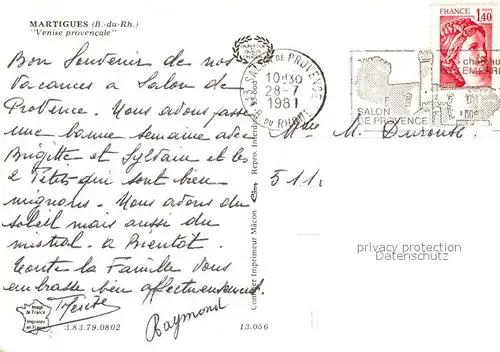 MARTIGUES (B.-du-Rh.)
"Venise provençale"
Bon Souvenir de nos
vacances a Salon de
Provence. Nous avons passé
une bonne semaine avec
Brigitte et Sylvain et les
2 Petits qui sont bien
mignons. Nous avons du
soleil mais aussi du
mistral. a Bientôt.
Toute la Famille vous
embrasse bien affectueusement.
Raymond
Image
de France
Imprimée
en France
3.83.79.0802
13.056
Combier Imprimeur Mâcon
Cim
Repro. Interdite
13 SALON DE PROVENCE
10H30
28-7
1981
B. DU RHONE
SALON
DE PROVENCE
FRANCE
1,40
Mme M.
511
privacy protection
Datenschutz